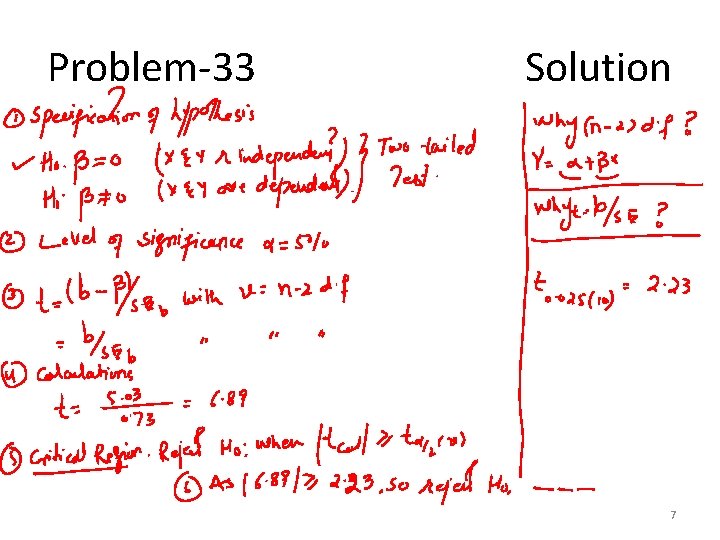 Problem-33
Solution
① Specification of hypothesis ?
✓ H₀: β=0 (X & Y r independent) ? } Two-tailed
H₁: β≠0 (X & Y are dependent) } Test.
② Level of significance α=5%
③ t=(b-β)/SE_b with ν=n-2 d.f
= b/SE_b " " "
④ Calculations
t= 5.03/0.73 = 6.89
⑤ Critical Region. Reject H₀: when |t_cal| ≥ t_α/₂(ν)
⑥ As |6.89| ≥ 2.23, so reject H₀.
Why (n-2) d.f ?
Y= α+βx
Why t=b/SE ?
t₀.₀₂₅(10) = 2.23
7